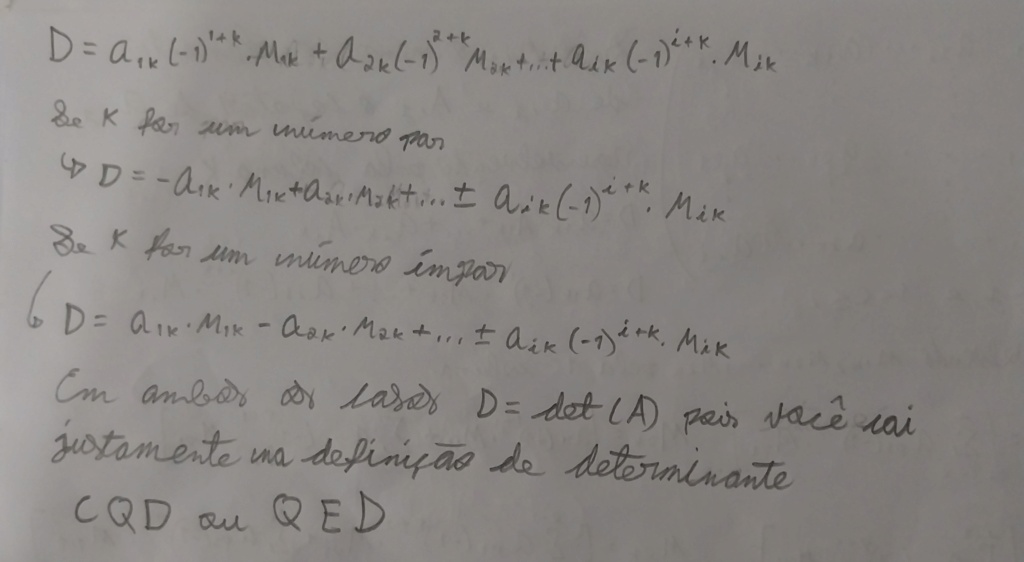 D = a₁ₖ(-1)¹⁺ᵏ · M₁ₖ + a₂ₖ(-1)²⁺ᵏ M₂ₖ + ... + aᵢₖ(-1)ⁱ⁺ᵏ · Mᵢₖ
Se K for um número par
↳ D = -a₁ₖ · M₁ₖ + a₂ₖ · M₂ₖ + ... ± aᵢₖ(-1)ⁱ⁺ᵏ · Mᵢₖ
Se K for um número ímpar
↳ D = a₁ₖ · M₁ₖ - a₂ₖ · M₂ₖ + ... ± aᵢₖ(-1)ⁱ⁺ᵏ · Mᵢₖ
Em ambos os casos D = det(A) pois você cai
justamente na definição de determinante
CQD ou QED